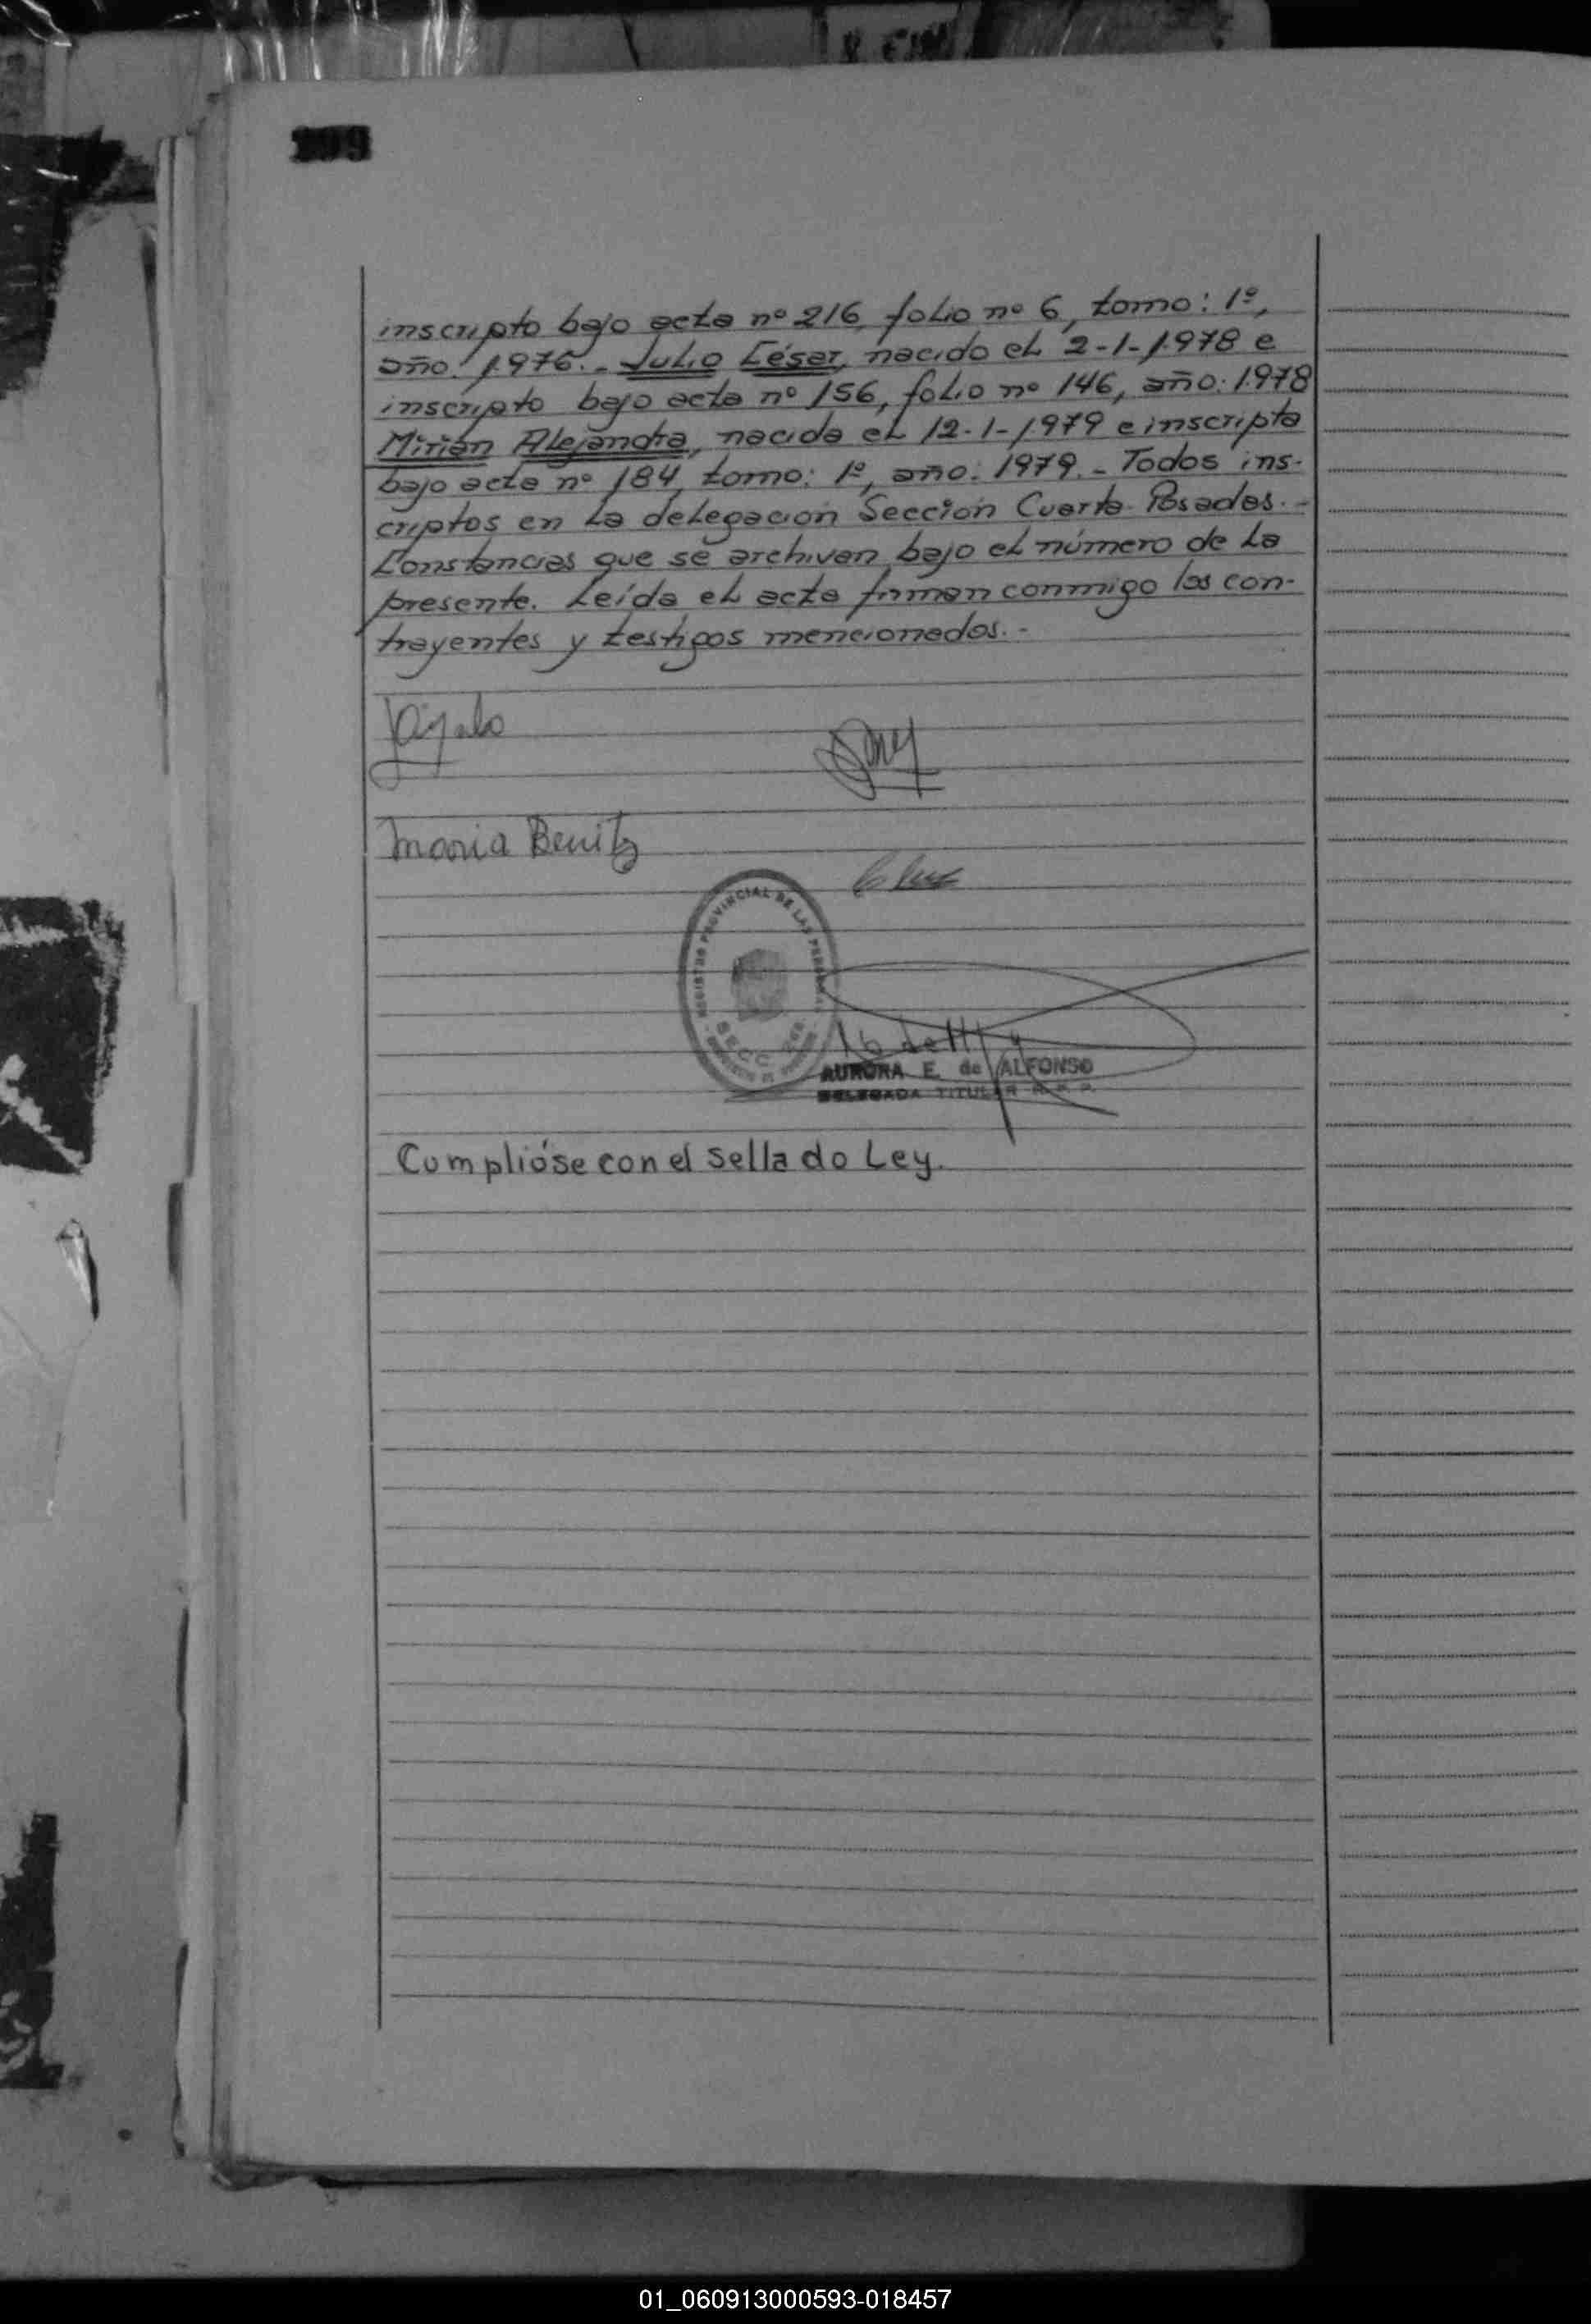 inscripto bajo acta nº 216, folio nº 6, tomo: 1º,
año: 1.976.- Julio César, nacido el 2-1-1.978 e
inscripto bajo acta nº 156, folio nº 146, año: 1.978
Mirian Alejandra, nacida el 12-1-1.979 e inscripta
bajo acta nº 184, tomo: 1º, año: 1979.- Todos ins-
criptos en la delegación Sección Cuarta Posadas.-
Constancias que se archivan bajo el número de la
presente. Leída el acta firman conmigo los con-
trayentes y testigos mencionados.-
Maria Benitz
REGISTRO PROVINCIAL DE LAS PERSONAS
SECC
AURORA E. de ALFONSO
DELEGADA TITULAR R. P. P.
Cumplióse con el sellado Ley.
01_060913000593-018457